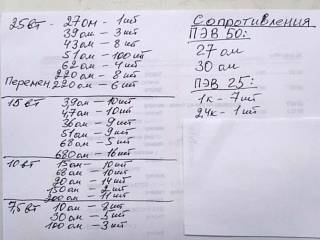 25вт - 27ом - 1шт
39ом - 3шт
43ом - 8шт
51ом - 100шт
62ом - 4шт
220ом - 8шт
Перемен. 220ом - 6шт
15вт 39ом - 10шт
4,7ом - 10шт
36ом - 9шт
51ом - 9шт
68ом - 5шт
680ом - 16шт
10вт 15ом - 10шт
68ом - 10шт
90ом - 14шт
150ом - 2шт
200ом - 11шт
7,5вт 10ом - 2шт
30ом - 5шт
100ом - 3шт
Сопротивления
ПЭВ 50:
27ом
30ом
ПЭВ 25:
1к - 7шт
2,4к - 1шт